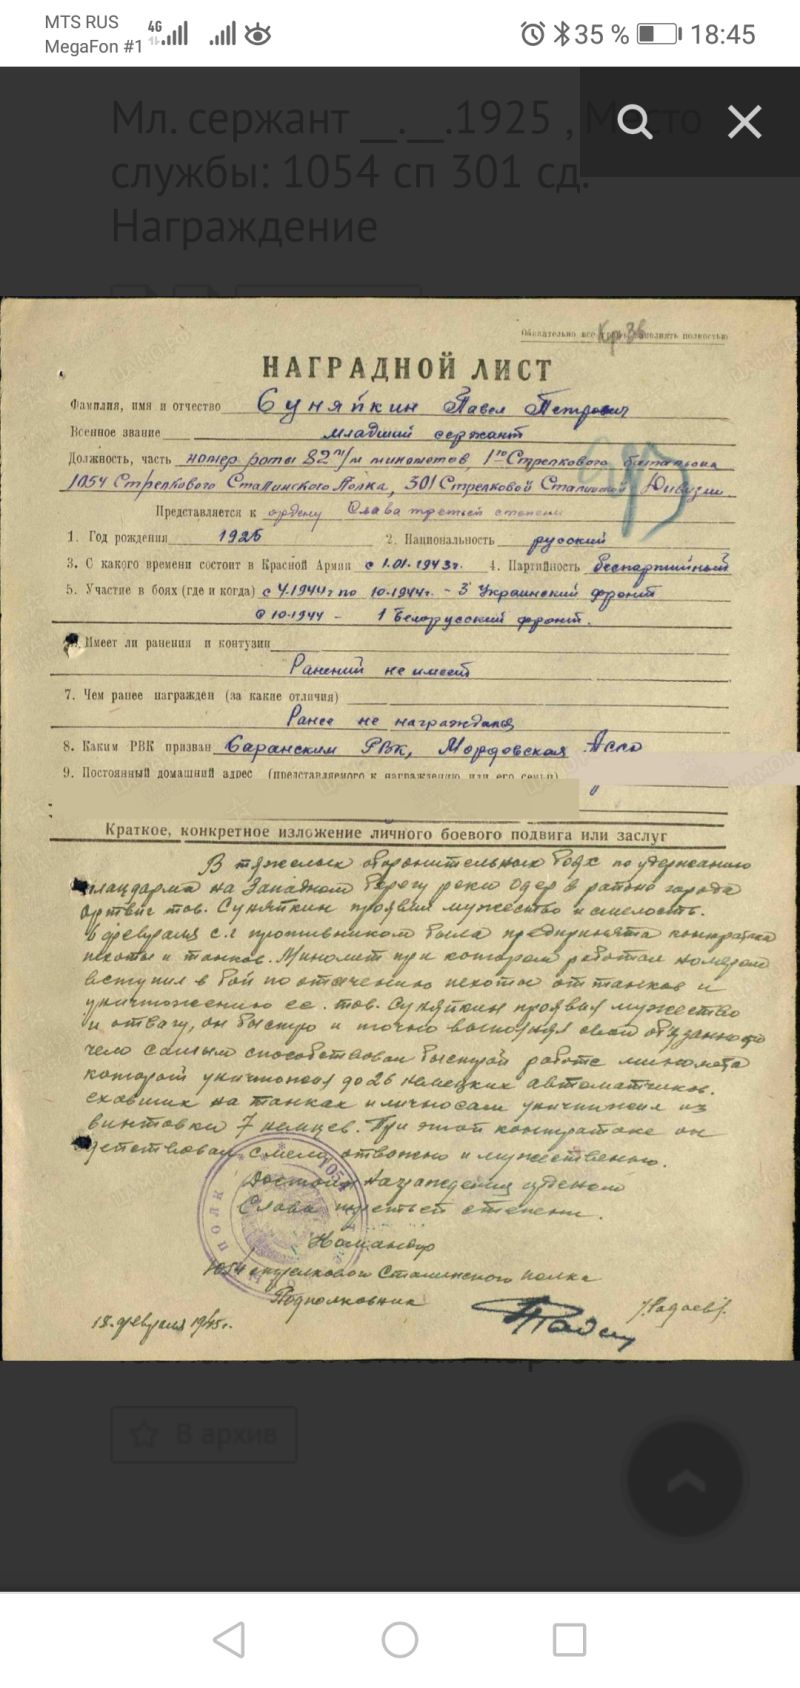 MTS RUS
MegaFon #1
4G
35 %
18:45
Мл. сержант __.__.1925 , Место
службы: 1054 сп 301 сд.
Награждение
Обязательно все заполнять полностью
НАГРАДНОЙ ЛИСТ
Фамилия, имя и отчество Суняйкин Павел Петрович
Военное звание младший сержант
Должность, часть номер роты 82 м/м минометов, 1го Стрелкового батальона
1054 Стрелкового Сталинского Полка, 301 Стрелковой Сталинской Дивизии
Представляется к ордену Слава третьей степени
1. Год рождения 1925 2. Национальность русский
3. С какого времени состоит в Красной Армии с 1.01.1943г. 4. Партийность беспартийный
5. Участие в боях (где и когда) с 4.1944г по 10.1944г. – 3 Украинский фронт
с 10.1944 – 1 Белорусский фронт.
Имеет ли ранения и контузии
Ранений не имеет
7. Чем ранее награжден (за какие отличия)
Ранее не награждался
8. Каким РВК призван Саранским РВК, Мордовская Асср
9. Постоянный домашний адрес (представляемого к награждению или его семьи)
Краткое, конкретное изложение личного боевого подвига или заслуг
В тяжелых оборонительных боях по удержанию
плацдарма на Западном берегу реки Одер в районе города
тов. Суняйкин проявил мужество и смелость.
февраля с.г противником была предпринята контратака
пехоты и танков. Миномет при котором работал номером
вступил в бой по отсечению пехоты от танков и
уничтожению ее. тов. Суняйкин проявил мужество
и отвагу, он быстро и точно выполнял свои обязанности
чем самым способствовал быстрой работе миномета
который уничтожил до 26 немецких автоматчиков.
ехавших на танках и лично сам уничтожил из
винтовки 7 немцев. При этой контратаке он
действовал смело, отважно и мужественно.
Достоин Награждения орденом
Слава третьей степени.
Командир
1054 стрелкового Сталинского полка
Подполковник
/Радаев/.
18. февраля 1945г.
В архив